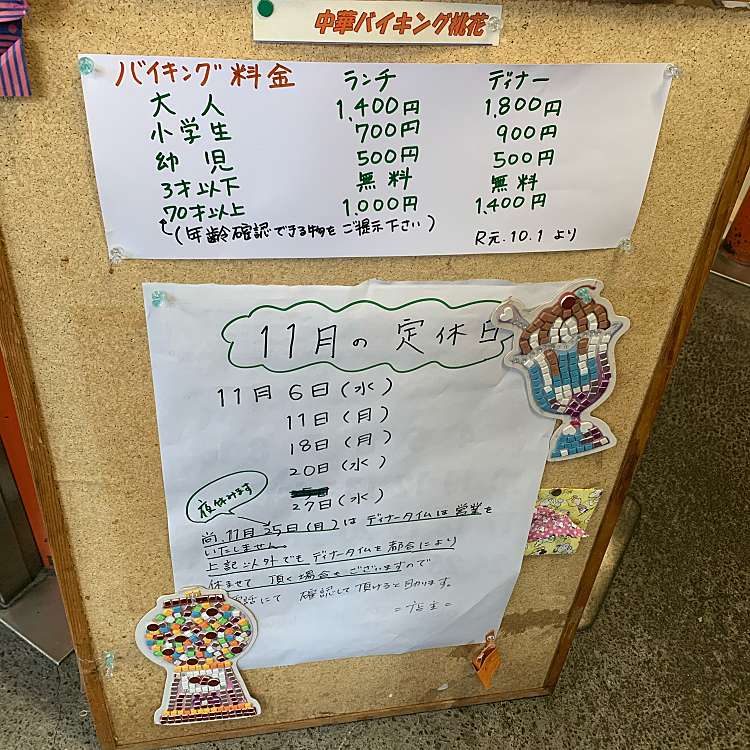 中華バイキング桃花
バイキング料金 ランチ ディナー
大人 1,400円 1,800円
小学生 700円 900円
幼児 500円 500円
3才以下 無料 無料
70才以上 1,000円 1,400円
(年齢確認できる物をご提示下さい) R元.10.1より
11月の定休日
11月6日(水)
11日(月)
18日(月)
20日(水)
27日(水)
夜休みます
尚、11月25日(月)はディナータイムは営業を
いたしません。
上記以外でもディナータイムを都合により
休ませて頂く場合もございますので
にて確認して頂けると助ります。
=店主=